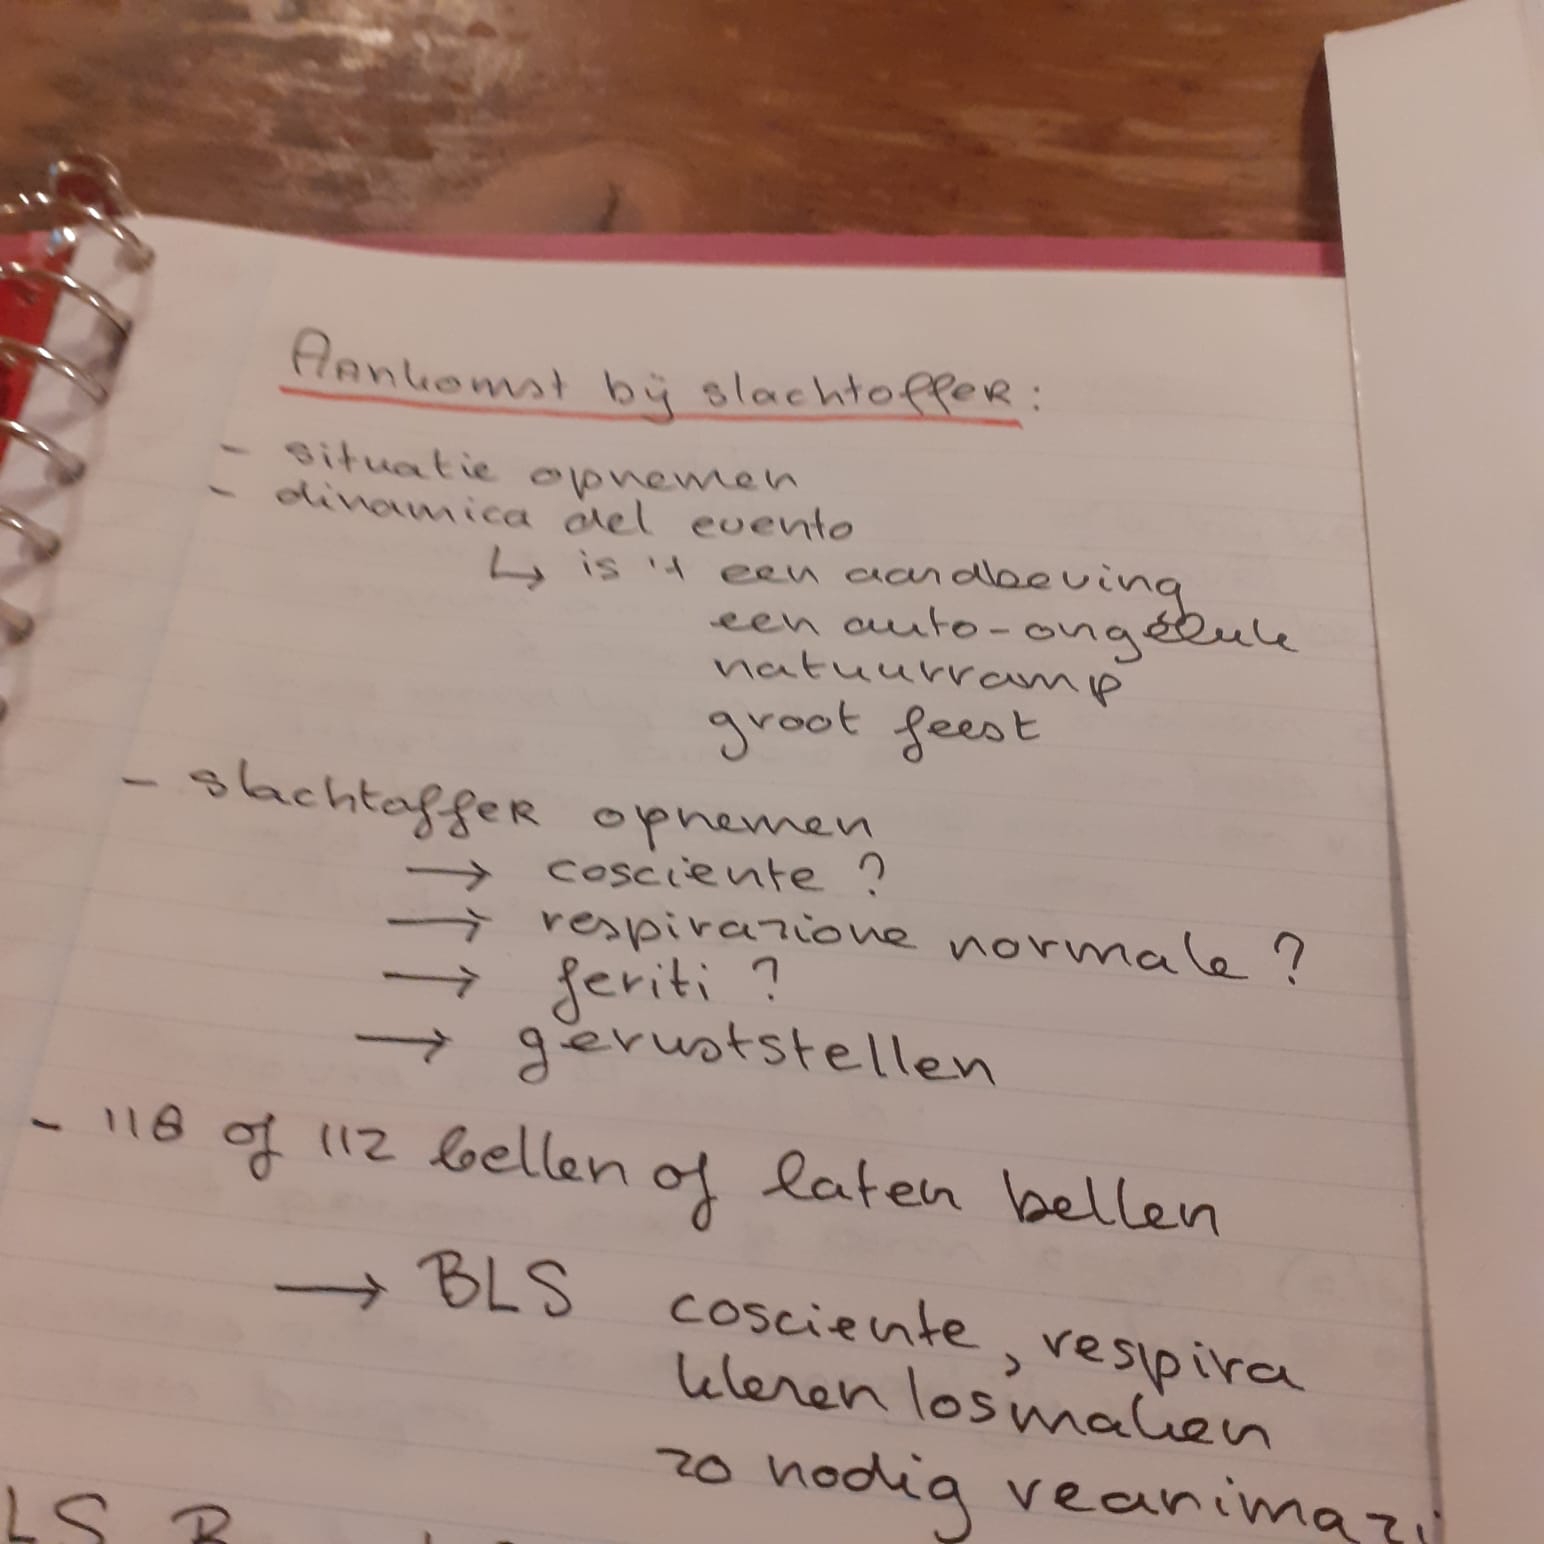 Aankomst bij slachtoffer:
- situatie opnemen
- dinamica del evento
↳ is 't een aardbeving
een auto-ongeluk
natuurramp
groot feest
- slachtoffer opnemen
→ cosciente ?
→ respirazione normale ?
→ feriti ?
→ geruststellen
- 118 of 112 bellen of laten bellen
→ BLS cosciente, respira
kleren losmaken
zo nodig reanimazi
LS B